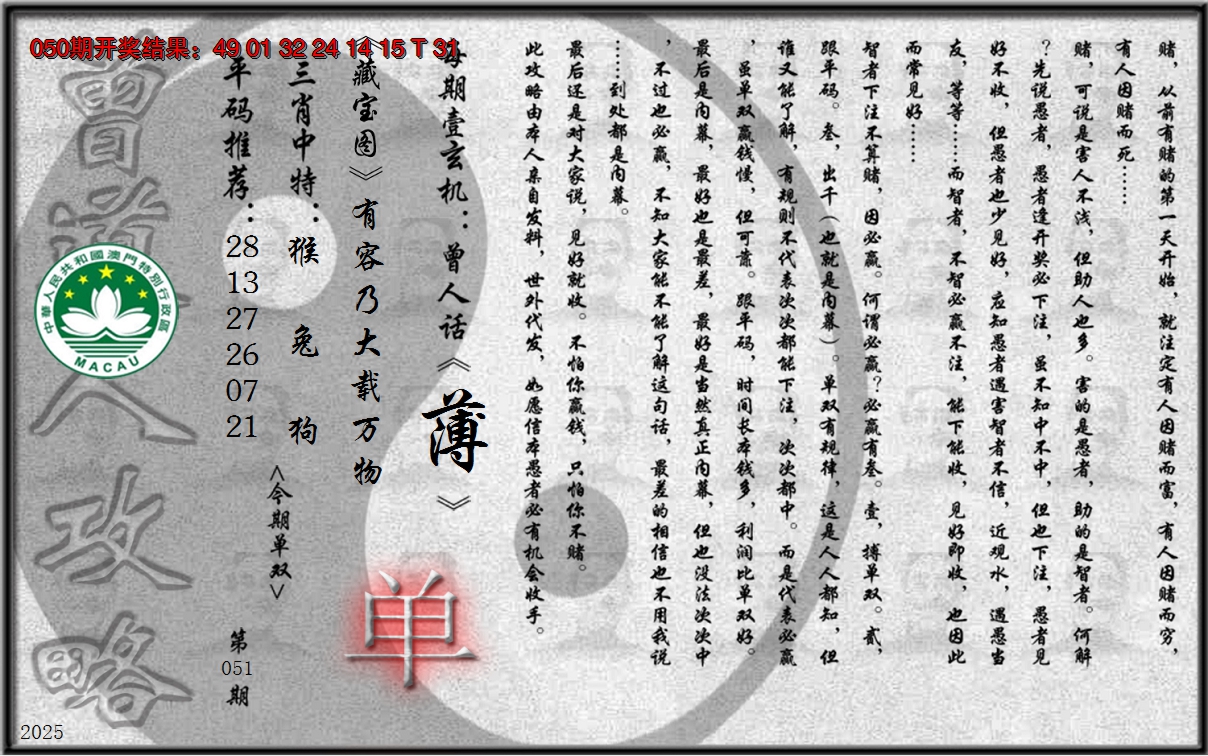 050期开奖结果：49 01 32 24 14 15 T 31
赌，从前有赌的第一天开始，就注定有人因赌而富，有人因赌而穷，
有人因赌而死……
赌，可说是害人不浅，但助人也多。害的是愚者，助的是智者。何解
？先说愚者，愚者逢开奖必下注，虽不知中不中，但也下注，愚者见
好不收，但愚者也少见好，应知愚者遇害智者不信，近观水，遇愚当
友，等等……而智者，不智必赢不注，能下能收，见好即收，也因此
而常见好……
智者下注不算赌，因必赢。何谓必赢？必赢有叁。壹，搏单双。贰，
跟平码。叁，出千（也就是内幕）。单双有规律，这是人人都知，但
谁又能了解，有规则不代表次次都能下注，次次都中。而是代表必赢
，虽单双赢钱慢，但可靠。跟平码，时间长本钱多，利润比单双好。
最后是内幕，最好也是最差，最好是当然真正内幕，但也没法次次中
，不过也必赢，不知大家能不能了解这句话，最差的相信也不用我说
……到处都是内幕。
最后还是对大家说，见好就收。不怕你赢钱，只怕你不赌。
此攻略由本人亲自发料，世外代发，如愿信本愚者必有机会收手。
每期壹玄机：曾人话《薄》
《藏宝图》有容乃大载万物
单
三肖中特：猴 兔 狗
<今期单双>
平码推荐：28 13 27 26 07 21
第051期
曾道人攻略
中華人民共和國澳門特別行政區
MACAU
2025